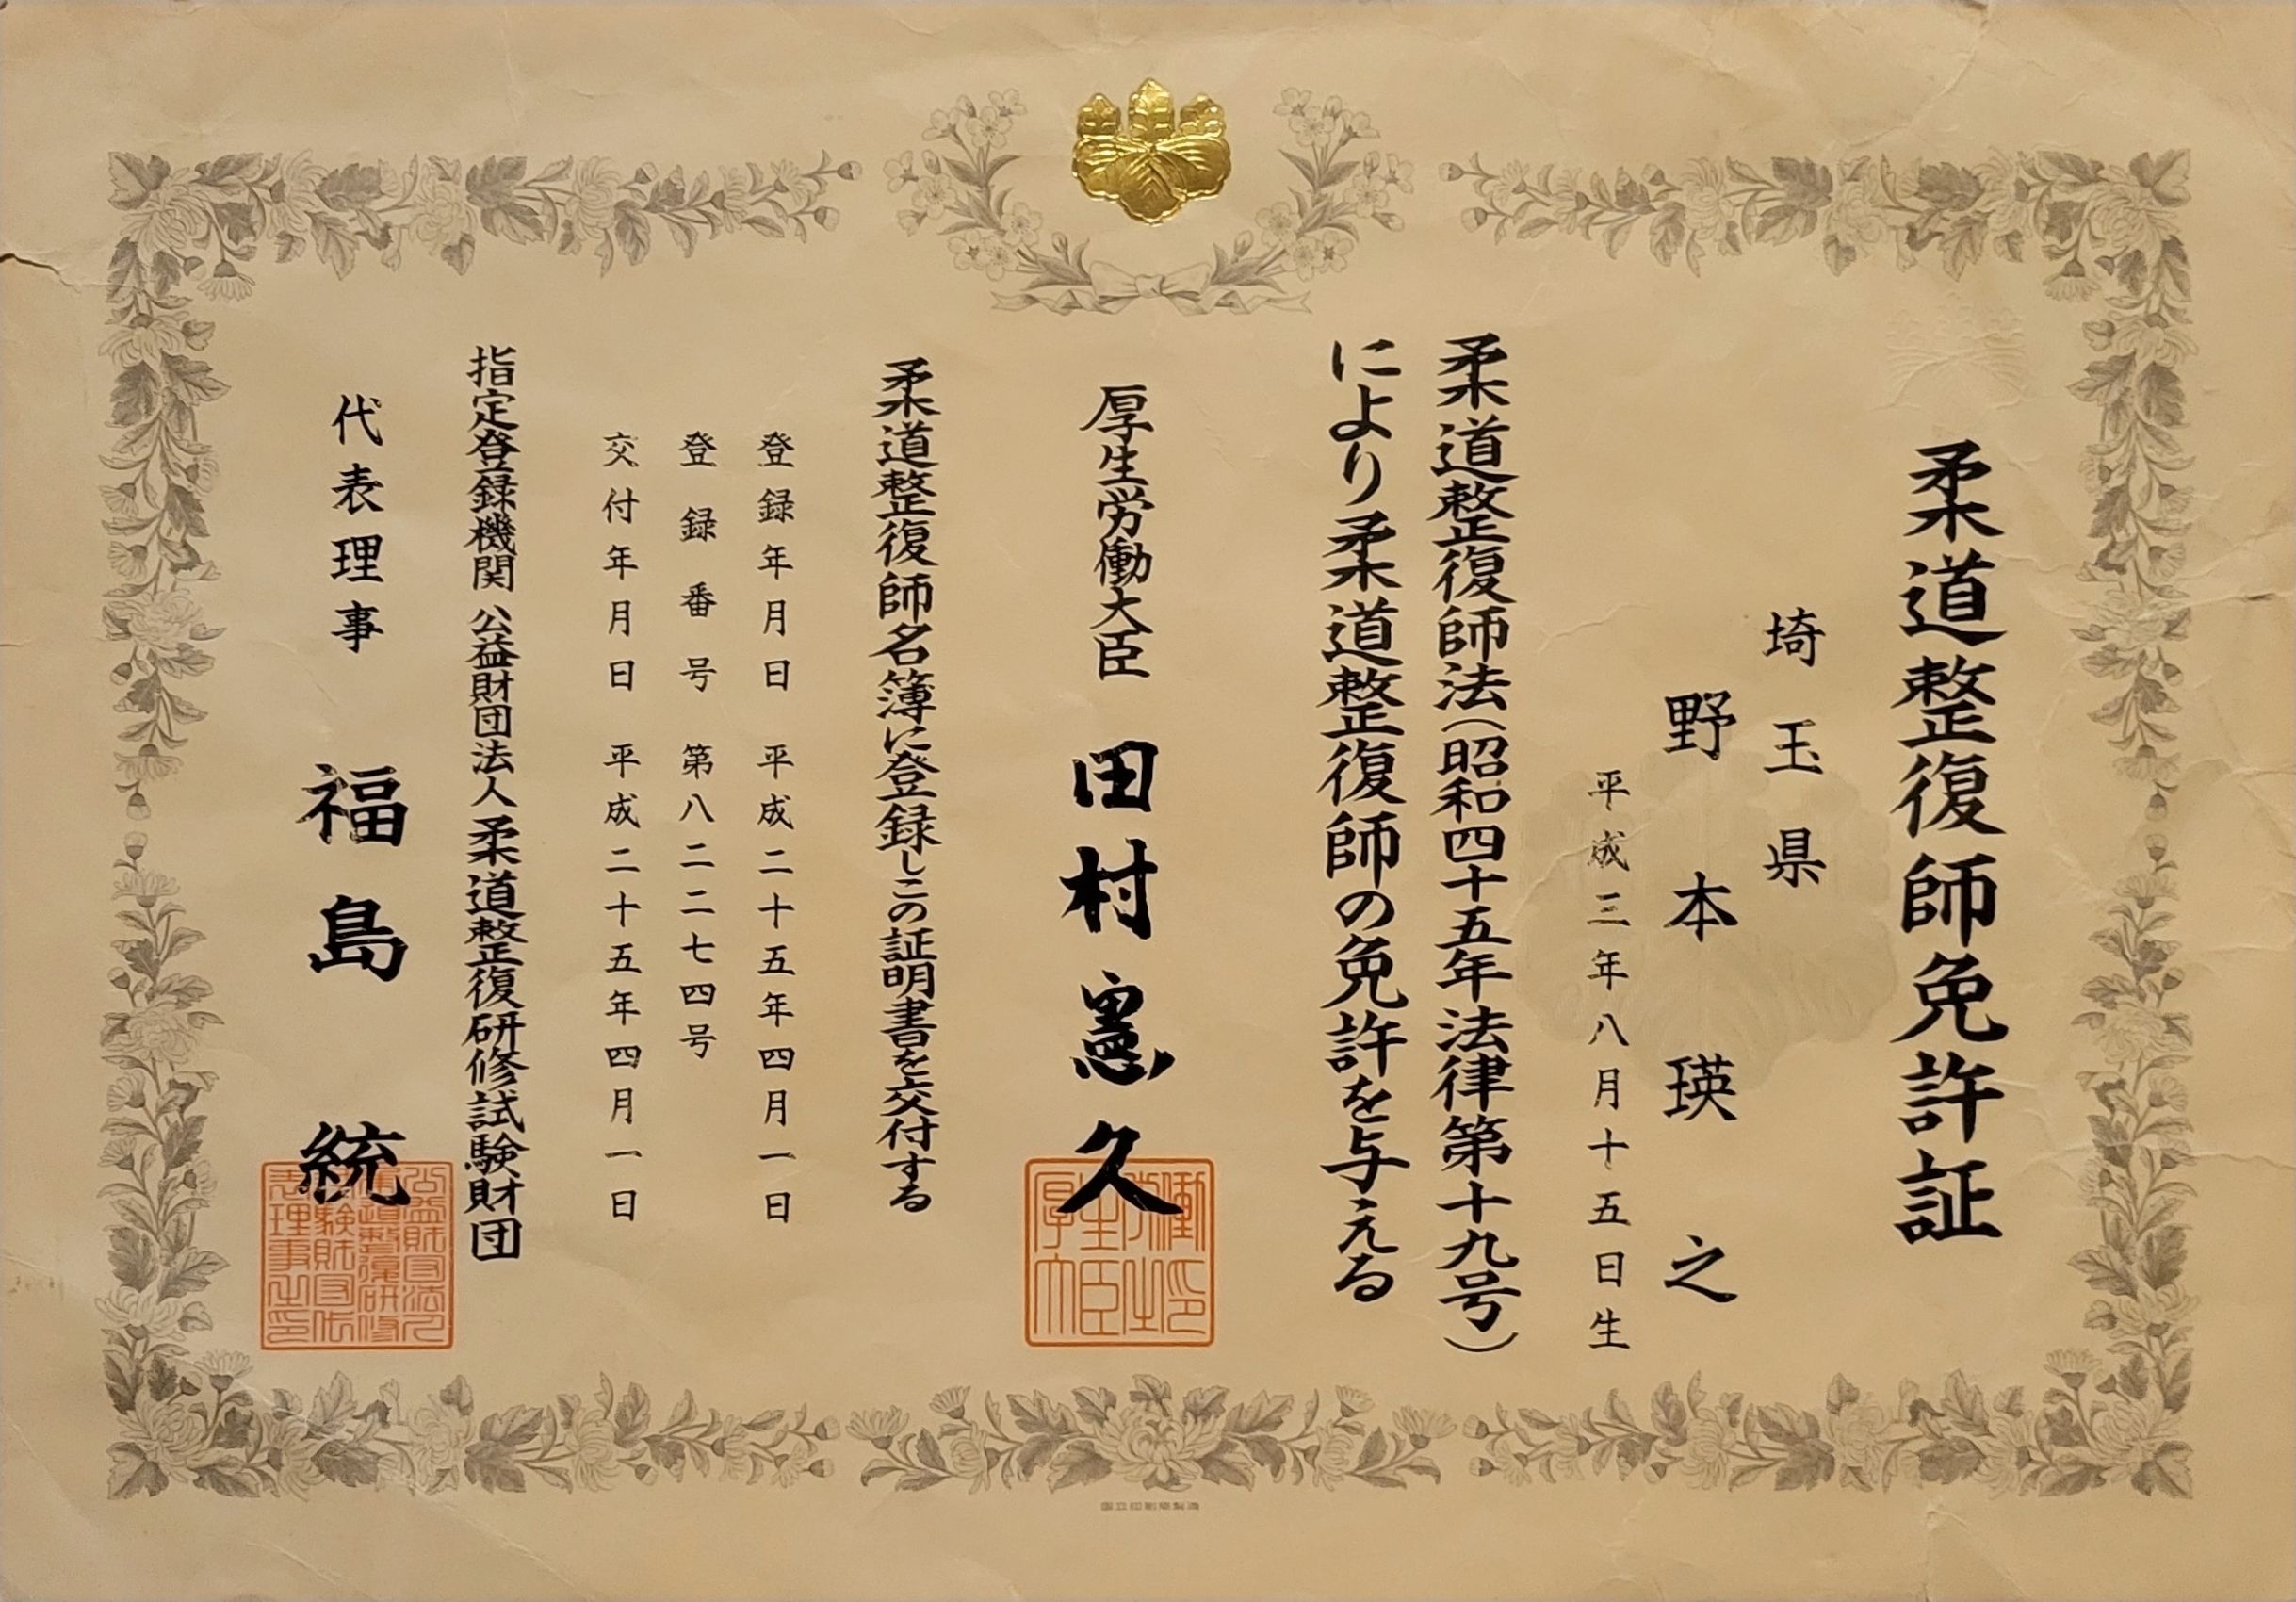 柔道整復師免許証
埼玉県
野本瑛之
平成三年八月十五日生
柔道整復師法(昭和四十五年法律第十九号)
により柔道整復師の免許を与える
厚生労働大臣 田村憲久
柔道整復師名簿に登録しこの証明書を交付する
登録年月日 平成二十五年四月一日
登録番号 第八二二七四号
交付年月日 平成二十五年四月一日
指定登録機関 公益財団法人 柔道整復研修試験財団
代表理事 福島統